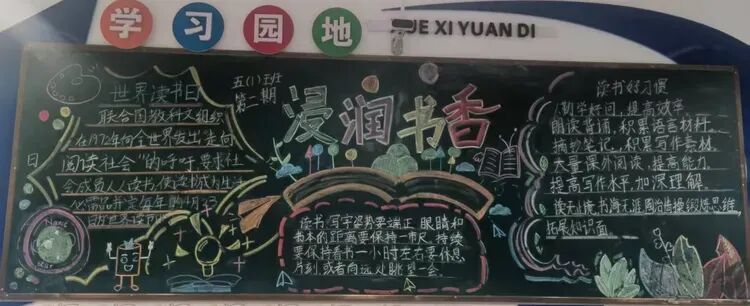 学习园地
XUE XI YUAN DI
世界读书日
联合国教科文组织
在1972年向全世界发出"走向
阅读社会"的呼吁要求社
会成员人人读书,使读书成为生活
日
五(1)班
第二期
浸润书香
读书、写字姿势要端正,眼睛和
书本的距离要保持一市尺,持续
要保持看书一小时左右要休息
片刻,或者向远处眺望一会。
读书好习惯
勤学好问,提高效率
朗读背诵,积累语言材料,
摘抄笔记,积累写作素材
大量课外阅读,提高能力
提高写作水平,加深理解
拓展知识面